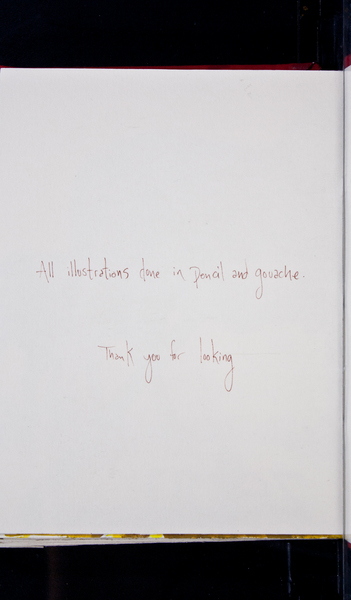 All illustrations done in pencil and gouache.
Thank you for looking